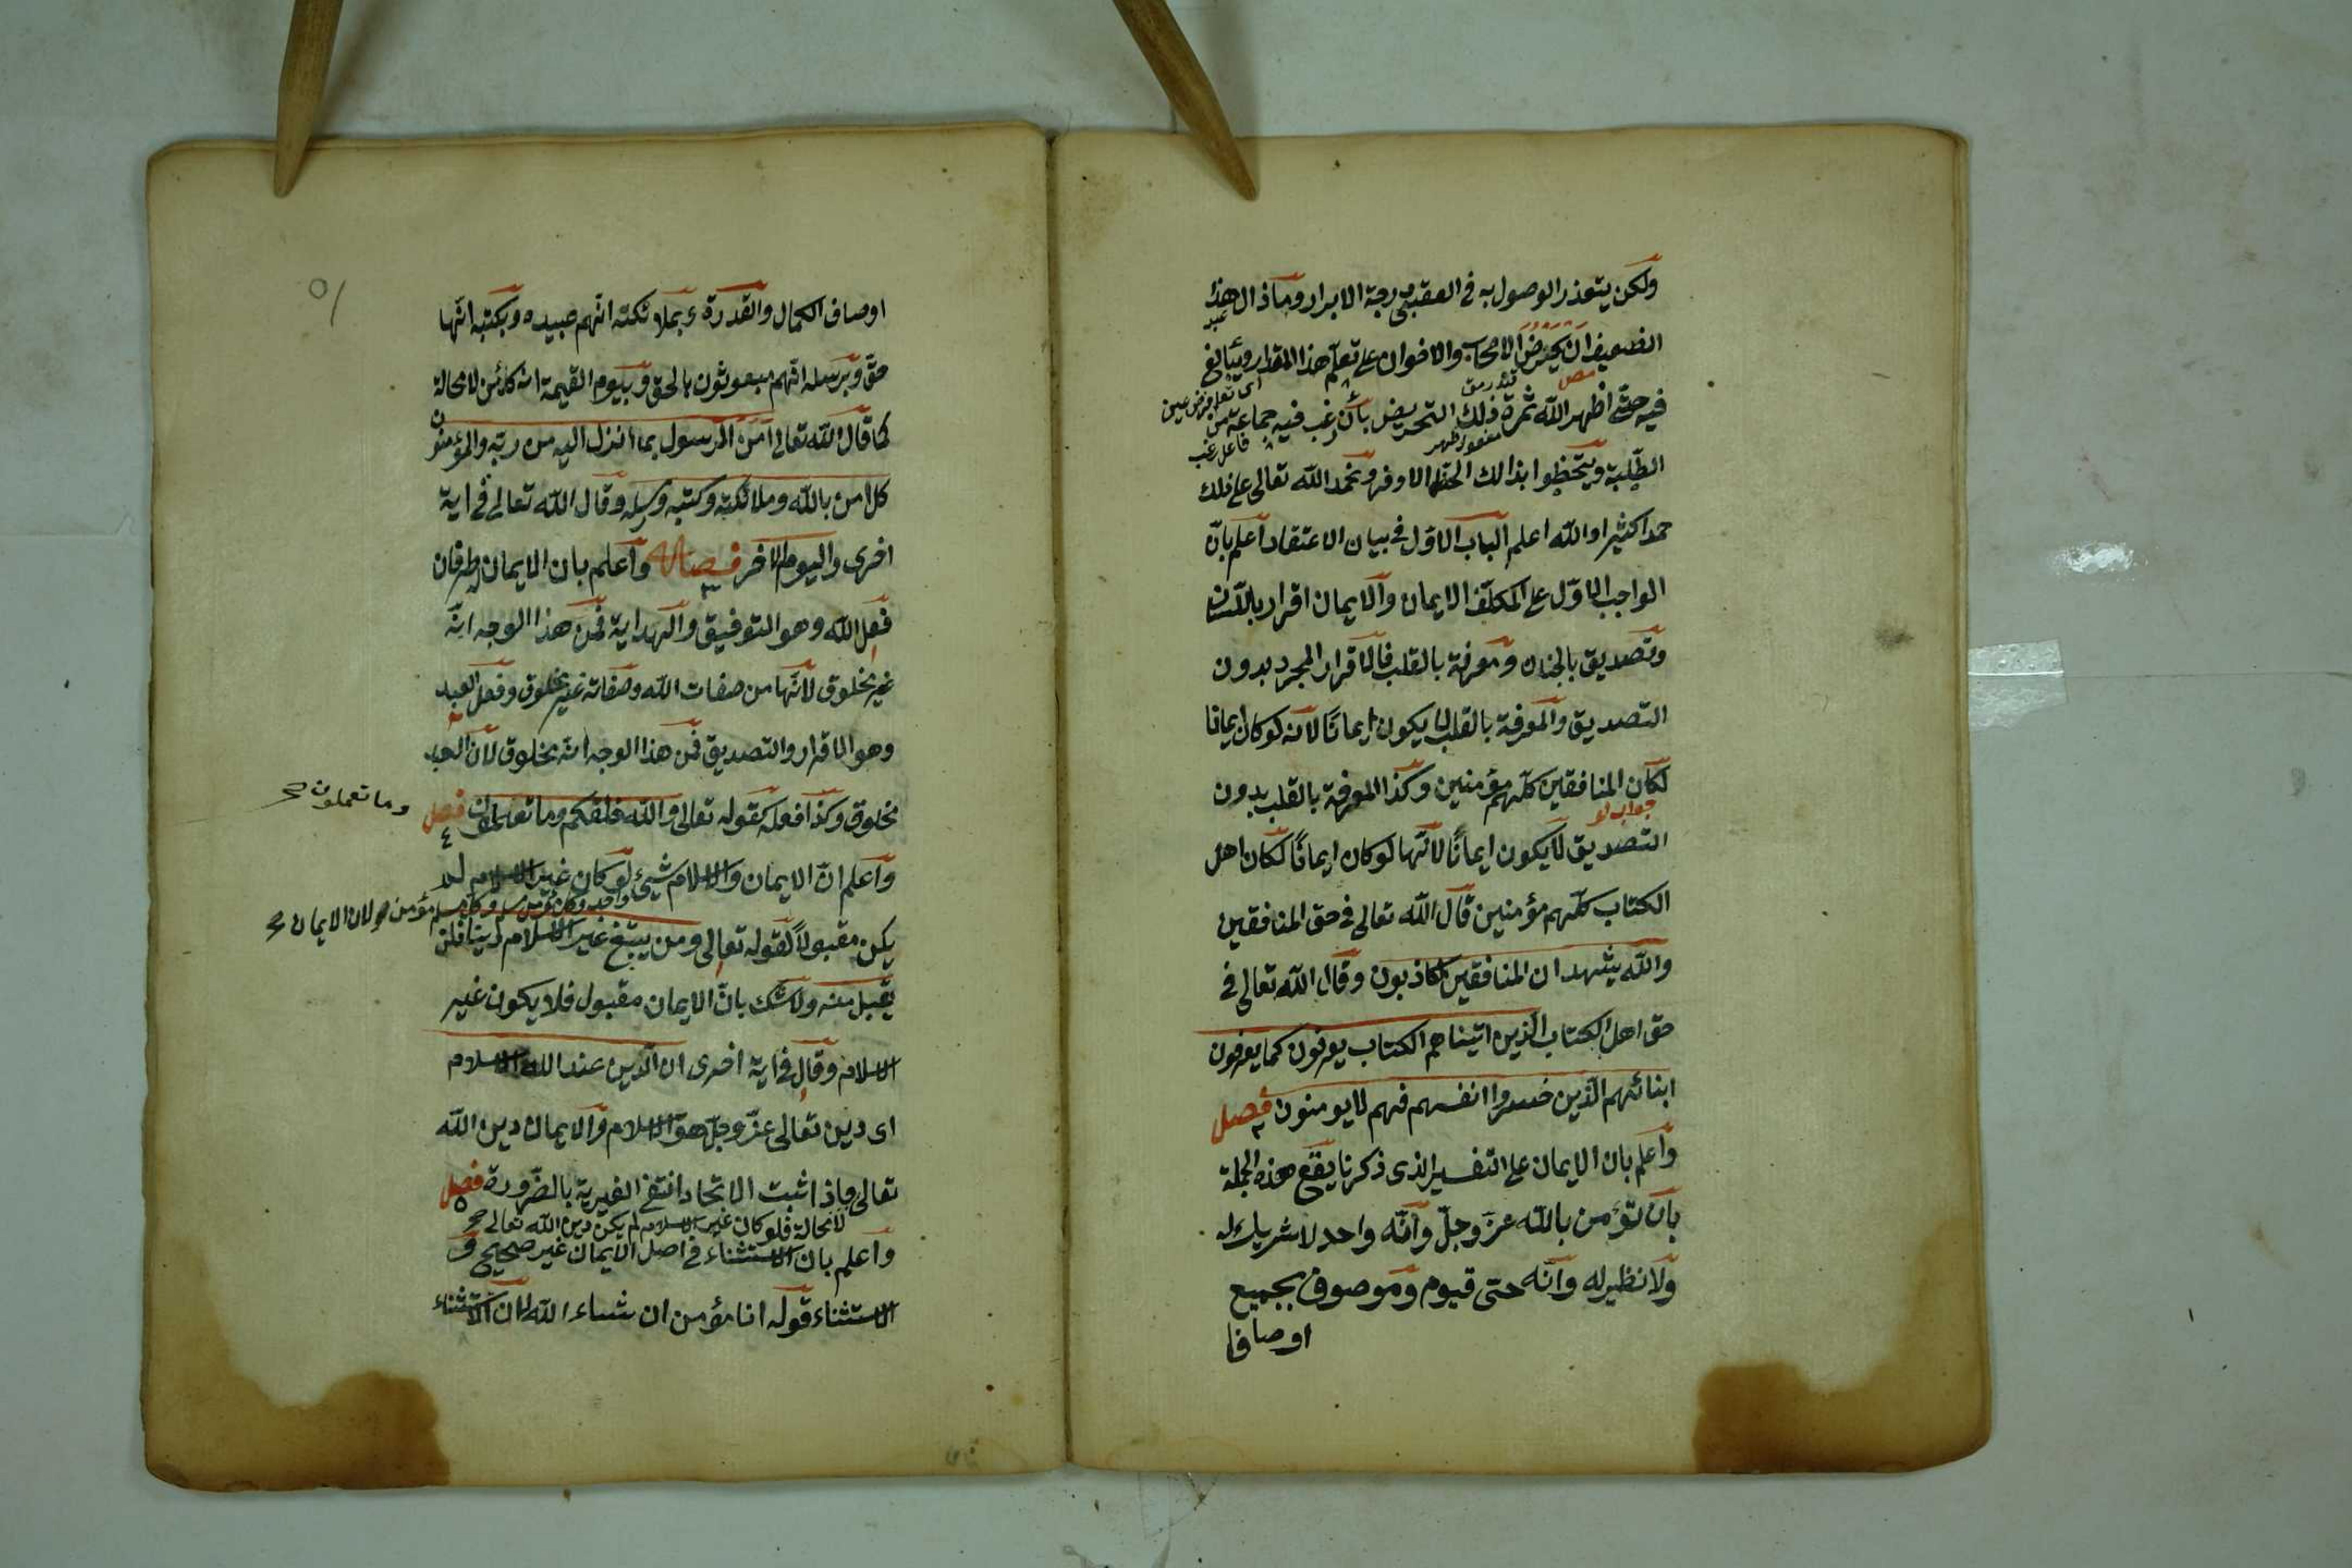 ولكن يتعذر الوصول به في العقبى درجة الابرار وما ذال هذا
عبد
الضعيف ان يحرض الاصحاب والاخوان على تعلم هذا المقدار ويبالغ
فيه حتى اظهر الله ثمرة ذلك التحريض بان رغب فيه جماعة من
اى تعلم فرض عين
مفعول اظهر
فاعل رغب
الطلبة ويتحظوا بذالك الحظ الاوفر ونحمد الله تعالى على ذلك
حمدا كثيرا والله اعلم الباب الاول في بيان الاعتقاد اعلم بان
الواجب الاول على المكلف الايمان والايمان اقرار باللسان
وتصديق بالجنان ومعرفة بالقلب فالاقرار المجرد بدون
التصديق والمعرفة بالقلب لا يكون ايمانا لانه لو كان ايمانا
لكان المنافقين كلهم مؤمنين وكذا المعرفة بالقلب بدون
جواب لو
التصديق لا يكون ايمانا لانها لو كان ايمانا لكان اهل
الكتاب كلهم مؤمنين قال الله تعالى في حق المنافقين
والله يشهد ان المنافقين لكاذبون وقال الله تعالى في
حق اهل الكتاب الذين اتيناهم الكتاب يعرفون كما يعرفون
ابنائهم الذين خسروا انفسهم فهم لا يومنون فصل
واعلم بان الايمان على التفسير الذى ذكرنا يقع هذه الجملة
بان تؤمن بالله عز وجل وانه واحد لا شريك له
ولا نظير له وانه حى قيوم وموصوف بجميع
اوصافا
اوصاف الكمال والقدرة وبملائكته انهم عبيده وبكتبه انها
حق وبرسله انهم مبعوثون بالحق وبيوم القيمة انه كائن لا محالة
كما قال الله تعالى آمن الرسول بما انزل اليه من ربه والمؤمنون
كل امن بالله وملائكته وكتبه ورسله وقال الله تعالى في اية
اخرى واليوم الاخر فصل ٣ واعلم بان الايمان له طرفان
فعل الله وهو التوفيق والهداية فمن هذا الوجه انه
غير مخلوق لانها من صفات الله وصفاته غير مخلوق وفعل العبد
وهو الاقرار والتصديق فمن هذا الوجه انه مخلوق لان العبد
مخلوق وكذا فعله كقوله تعالى والله خلقكم وما تعملون فصل ٤
وما تعملون صح
واعلم ان الايمان والاسلام شيئ لو كان غير الاسلام لم
واحد وكل مؤمن مسلم وكل مسلم مؤمن لان الايمان صح
يكن مقبولا كقوله تعالى ومن يبتغ غير الاسلام دينا فلن
يقبل منه ولا شك بان الايمان مقبول فلا يكون غير
الاسلام وقال في اية اخرى ان الدين عند الله الاسلام
اى دين تعالى عز وجل هو الاسلام والايمان دين الله
تعالى فاذا ثبت الاتحاد انتفى الغيرية بالضرورة فصل ٥
لا محالة فلو كان غير الاسلام لم يكن دين الله تعالى صح
واعلم بان الاستثناء في اصل الايمان غير صحيح و
الاستثناء قوله انا مؤمن ان شاء الله لان الاستثناء